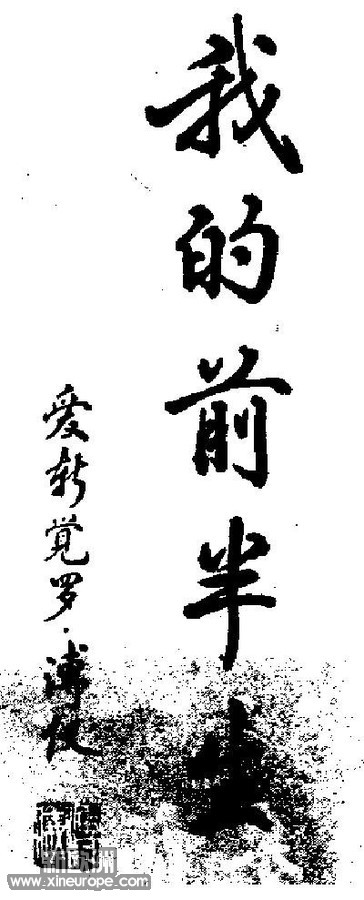 我的前半生
爱新觉罗·溥仪
www.xineurope.com